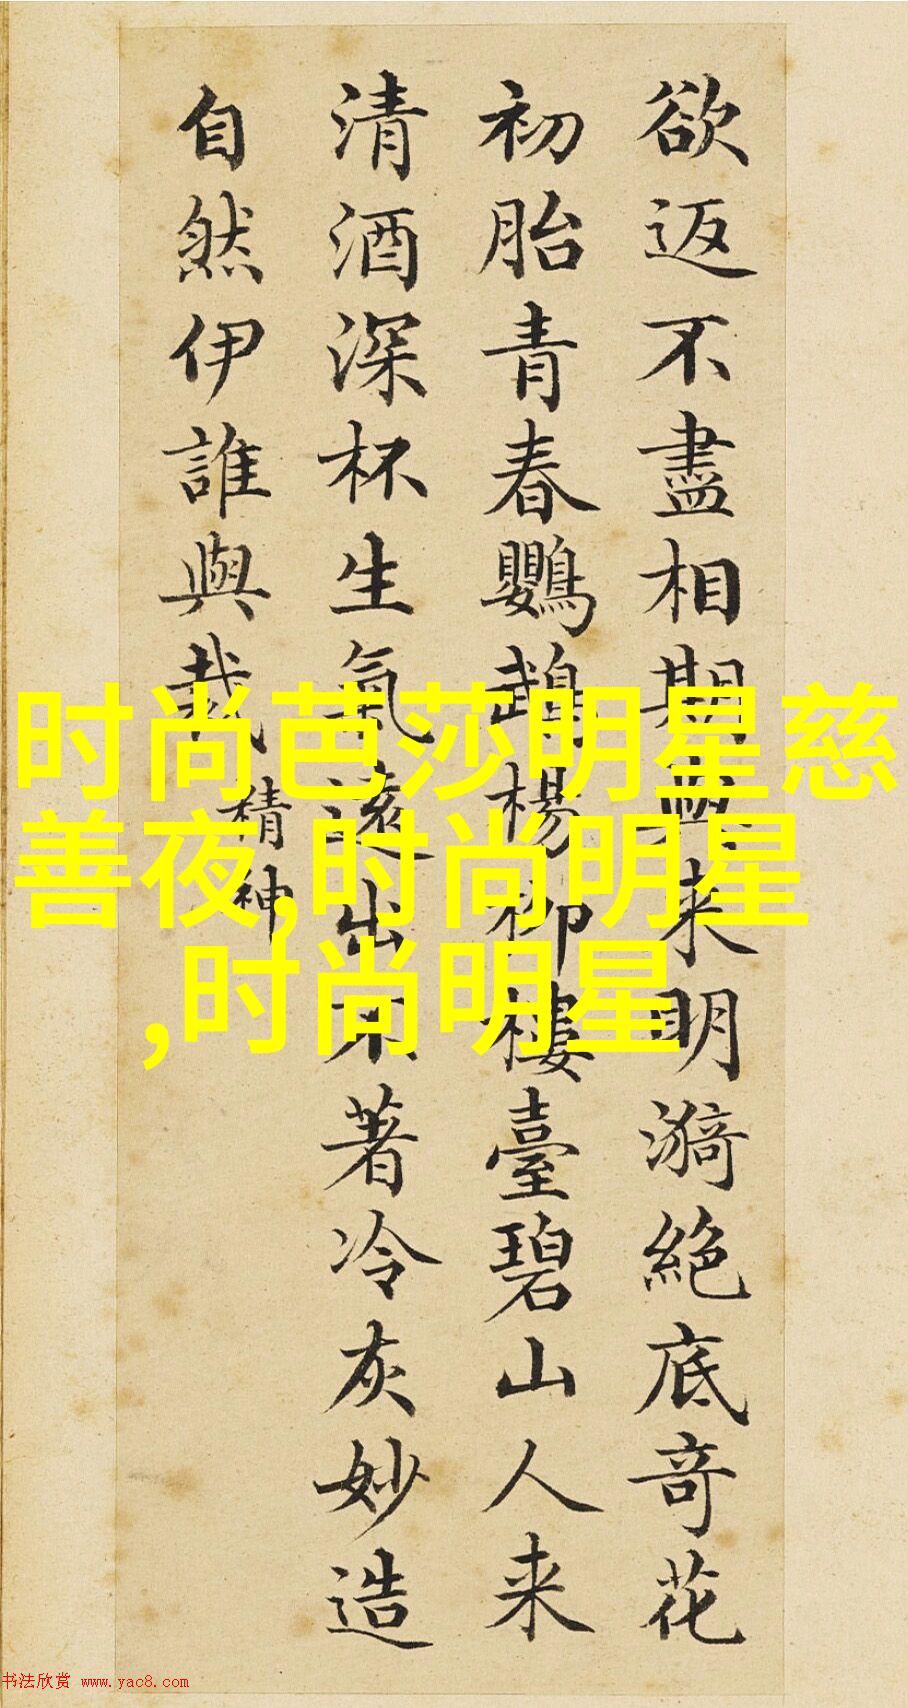 欲返不盡相期来明漪絕底奇花
初胎青春鸚鵡楊柳樓臺碧山人来
清酒深杯生氣遠出不著冷灰妙造
自然伊誰與裁
精神
时尚芭莎明星慈
善夜,时尚明星
,时尚明星
书法欣赏 www.yac8.com